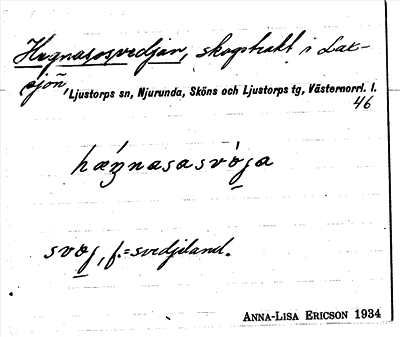 Hægnasosvedjan, skogstrakt i Lax-
sjön,
Ljustorps sn, Njurunda, Sköns och Ljustorps tg, Västernorrl. l.
46
hǽŋnasasvò̱ja
svo̱j, f. = svedjeland.
ANNA-LISA ERICSON 1934